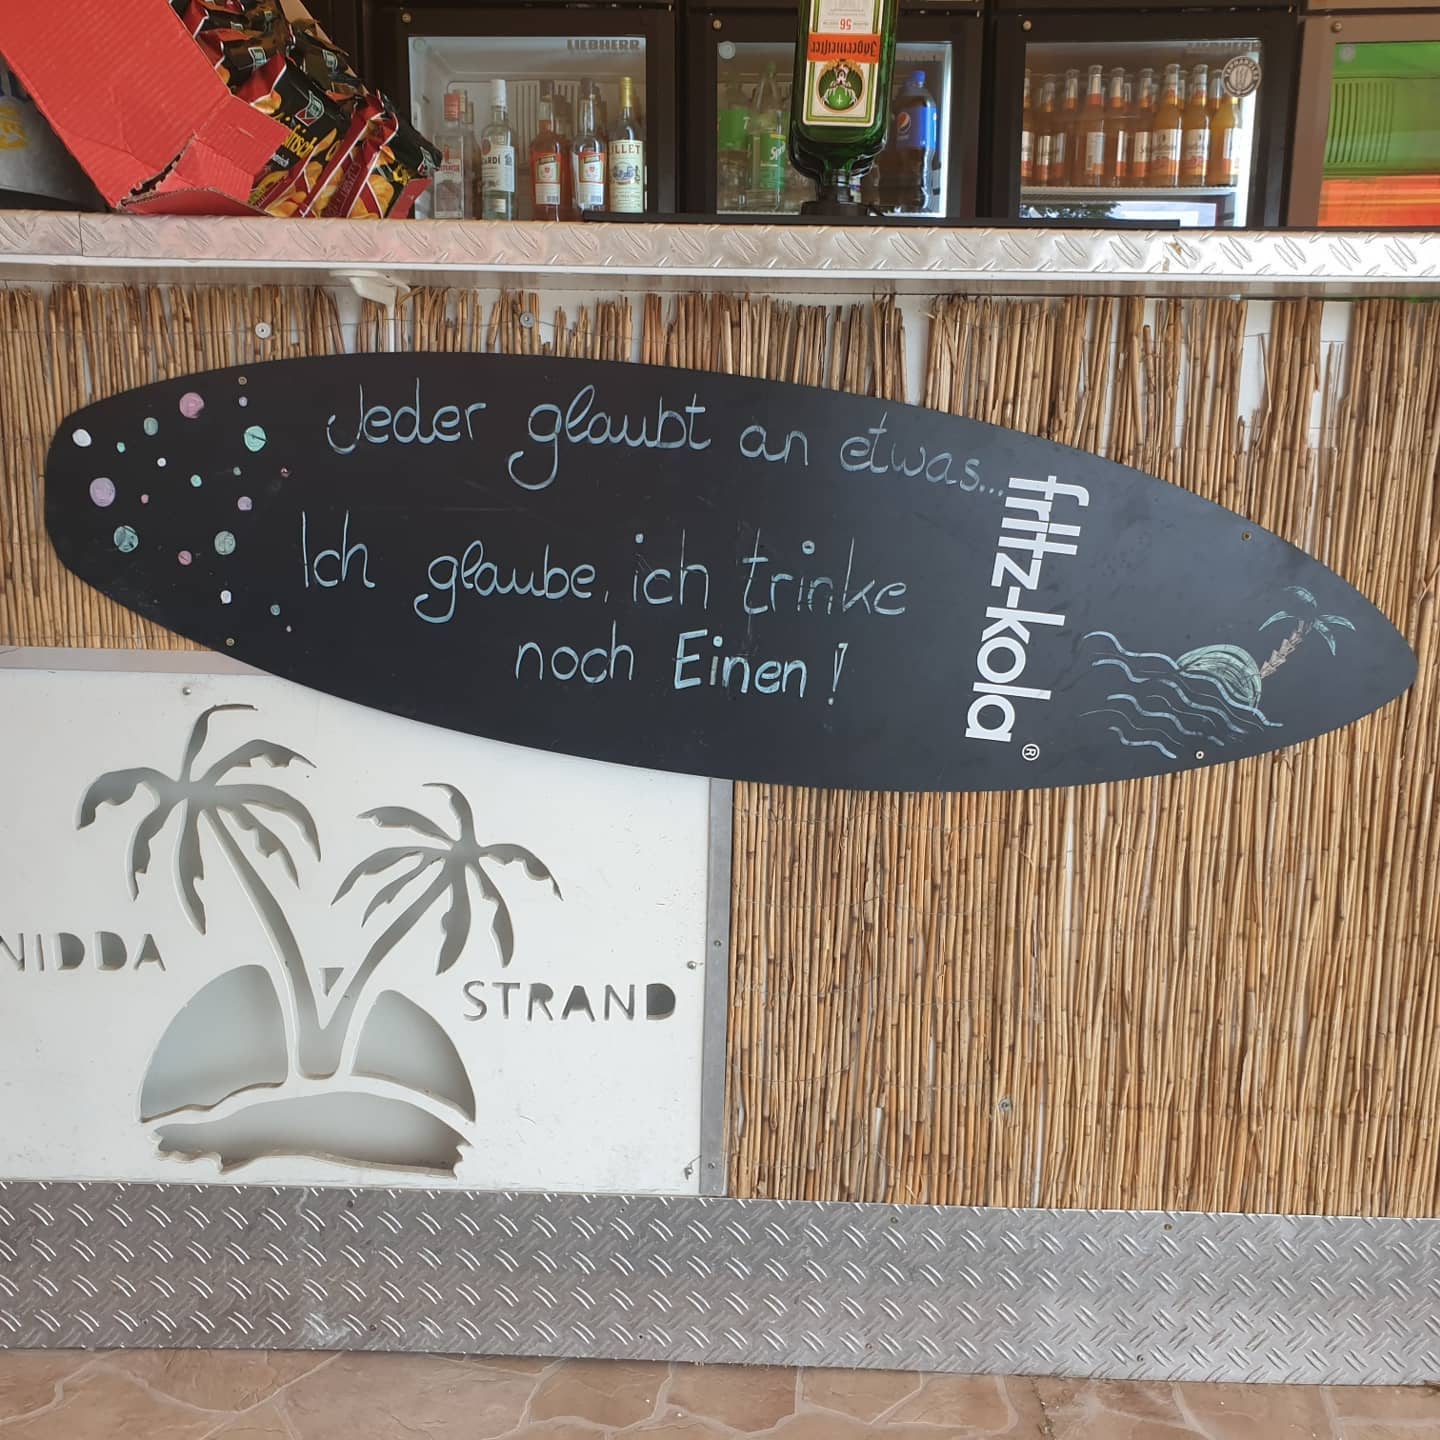 LIEBHERR
LIEBHERR
56
Jägermeister
Jeder glaubt an etwas...
Ich glaube, ich trinke
noch Einen!
fritz-kola®
NIDDA
STRAND